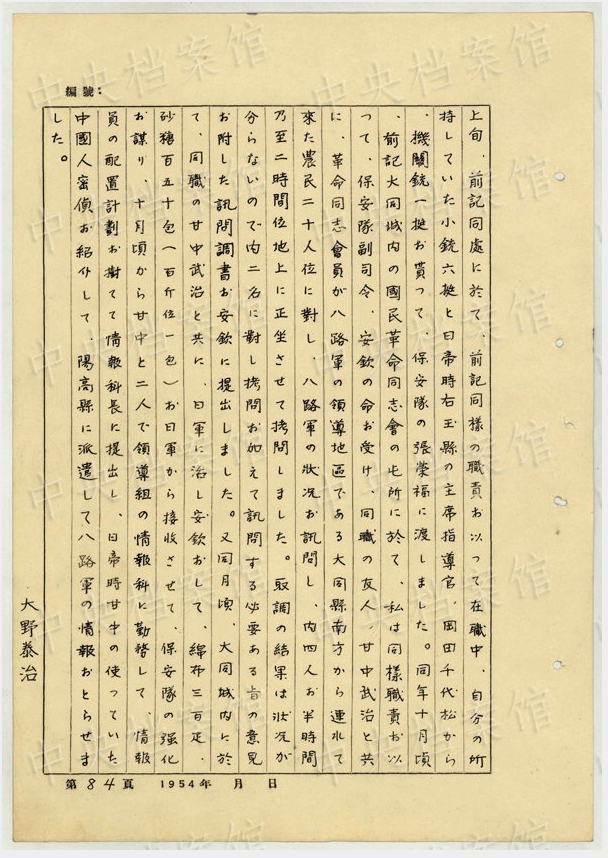 編號：
上旬、前記同處に於て、前記同様の職責お以つて在職中、自分の所
持していた小銃六挺と日帝時右玉縣の主席指導官、岡田千代松から
、機關銃一挺お貰つて、保安隊の張榮福に渡しました。同年十月頃
、前記大同城内の國民革命同志會の屯所に於て、私は同様職責お以
つて、保安隊副司令、安欽の命お受け、同職の友人、甘中武治と共
に、革命同志會員が八路軍の領導地區である大同縣南方から連れて
來た農民二十人位に對し、八路軍の狀况お訊問し、内四人お半時間
乃至二時間位地上に正坐させて拷問しました。取調の結果は狀况が
分らないので内二名に對し拷問お加えて訊問する必要ある旨の意見
お附した訊問調書お安欽に提出しました。又同月頃、大同城内に於
て、同職の甘中武治と共に、日軍に治し安欽おして、綿布三百疋、
砂糖百五十包（一百斤位一包）お日軍から接收させて、保安隊の强化
お謀り、十月頃から甘中と二人で領導組の情報科に勤務して、情報
員の配置計劃お樹てて情報科長に提出し、日帝時甘中の使つていた
中國人密偵お紹介して、陽高縣に派遣して八路軍の情報おとらせま
した。
大野泰治
第84頁 1954年 月 日
中央档案馆